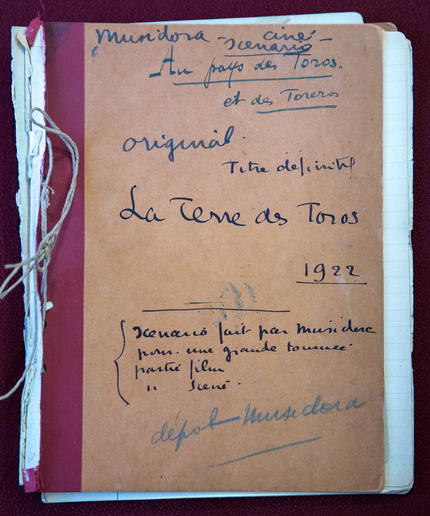 Musidora - ciné
scenario -
Au pays des Toros.
et des Toreros
original.
Titre définitif
La Terre des Toros
1922
scenario fait par Musidora
pour une grande tournée
partie film
" scène.
dépot Musidora